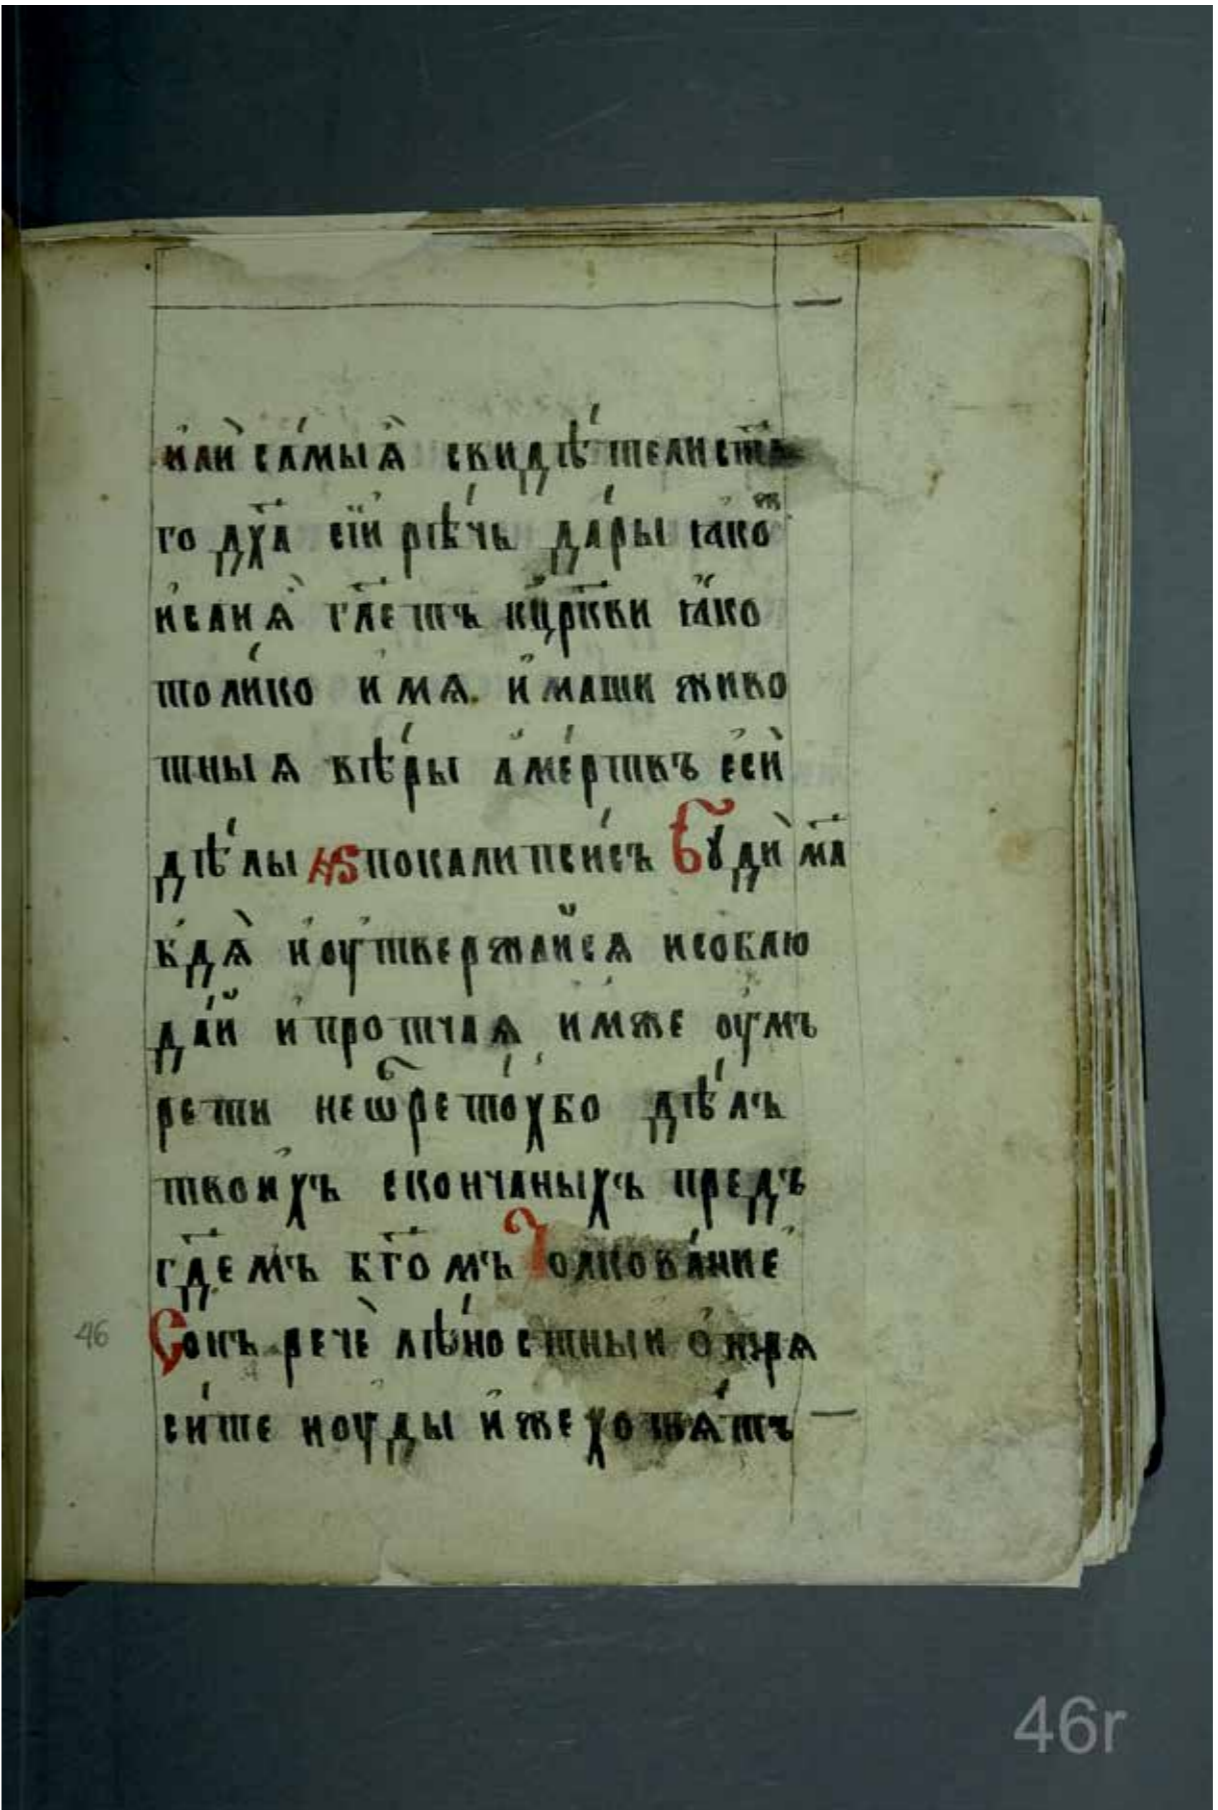 илѝ са́мыѧ̀ свидѣ́тели ст҃а
го дх҃а сїи́ рѣ́чь да́ры ꙗ҆коⷤ
и҆саиѧ̀ гл҃етъ кцр҃кви ꙗ҆ко
толи́ко и҆мѧ и҆маши живо
тныѧ вѣ́ры а҆ме́ртвъ є҆сѝ
дѣ́лы Апокалипси́съ Бꙋди̑ мл҃
вдѧ̀ и҆оу҆твержайсѧ исоблю
да́й и҆протчаѧ и҆мже оу҆мъ
рети неѡ҆брето́хбо дѣ́лъ
твои҆хъ скончаныхъ предъ
гд҃емъ бг҃омъ Толкова́ние
Сонъ речѐ лѣ́ностный ѻ҆трѧ
си́те ноуды и҆же хотѧ́тъ
46
46r